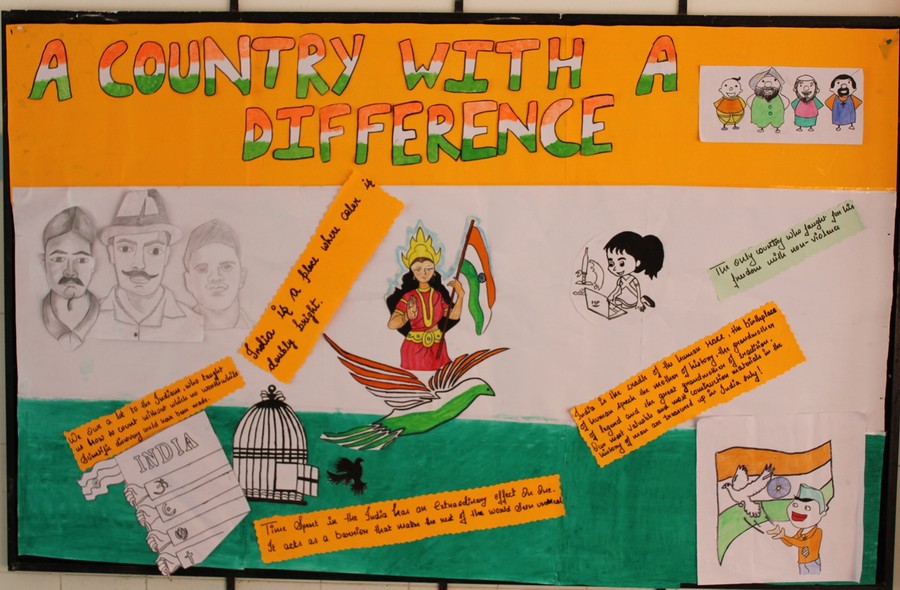 A COUNTRY WITH A
DIFFERENCE
India is a place where color is
doubly bright.
The only country who faught for his
fredom with non-violence
India is the cradle of the human race, the birthplace
of human speech the mother of history, the grandmother
of legend and the great grandmother of tradition.
Our most valuable and most construction materials in the
history of man are treasured up in India only!
We owe a lot to the Indians, who taught
us how to count without which no worthwhile
scientific discovery could have been made.
INDIA
Time spent in the India has an extraordinary effect on one.
It acts as a barrier that makes the rest of the world seem unreal